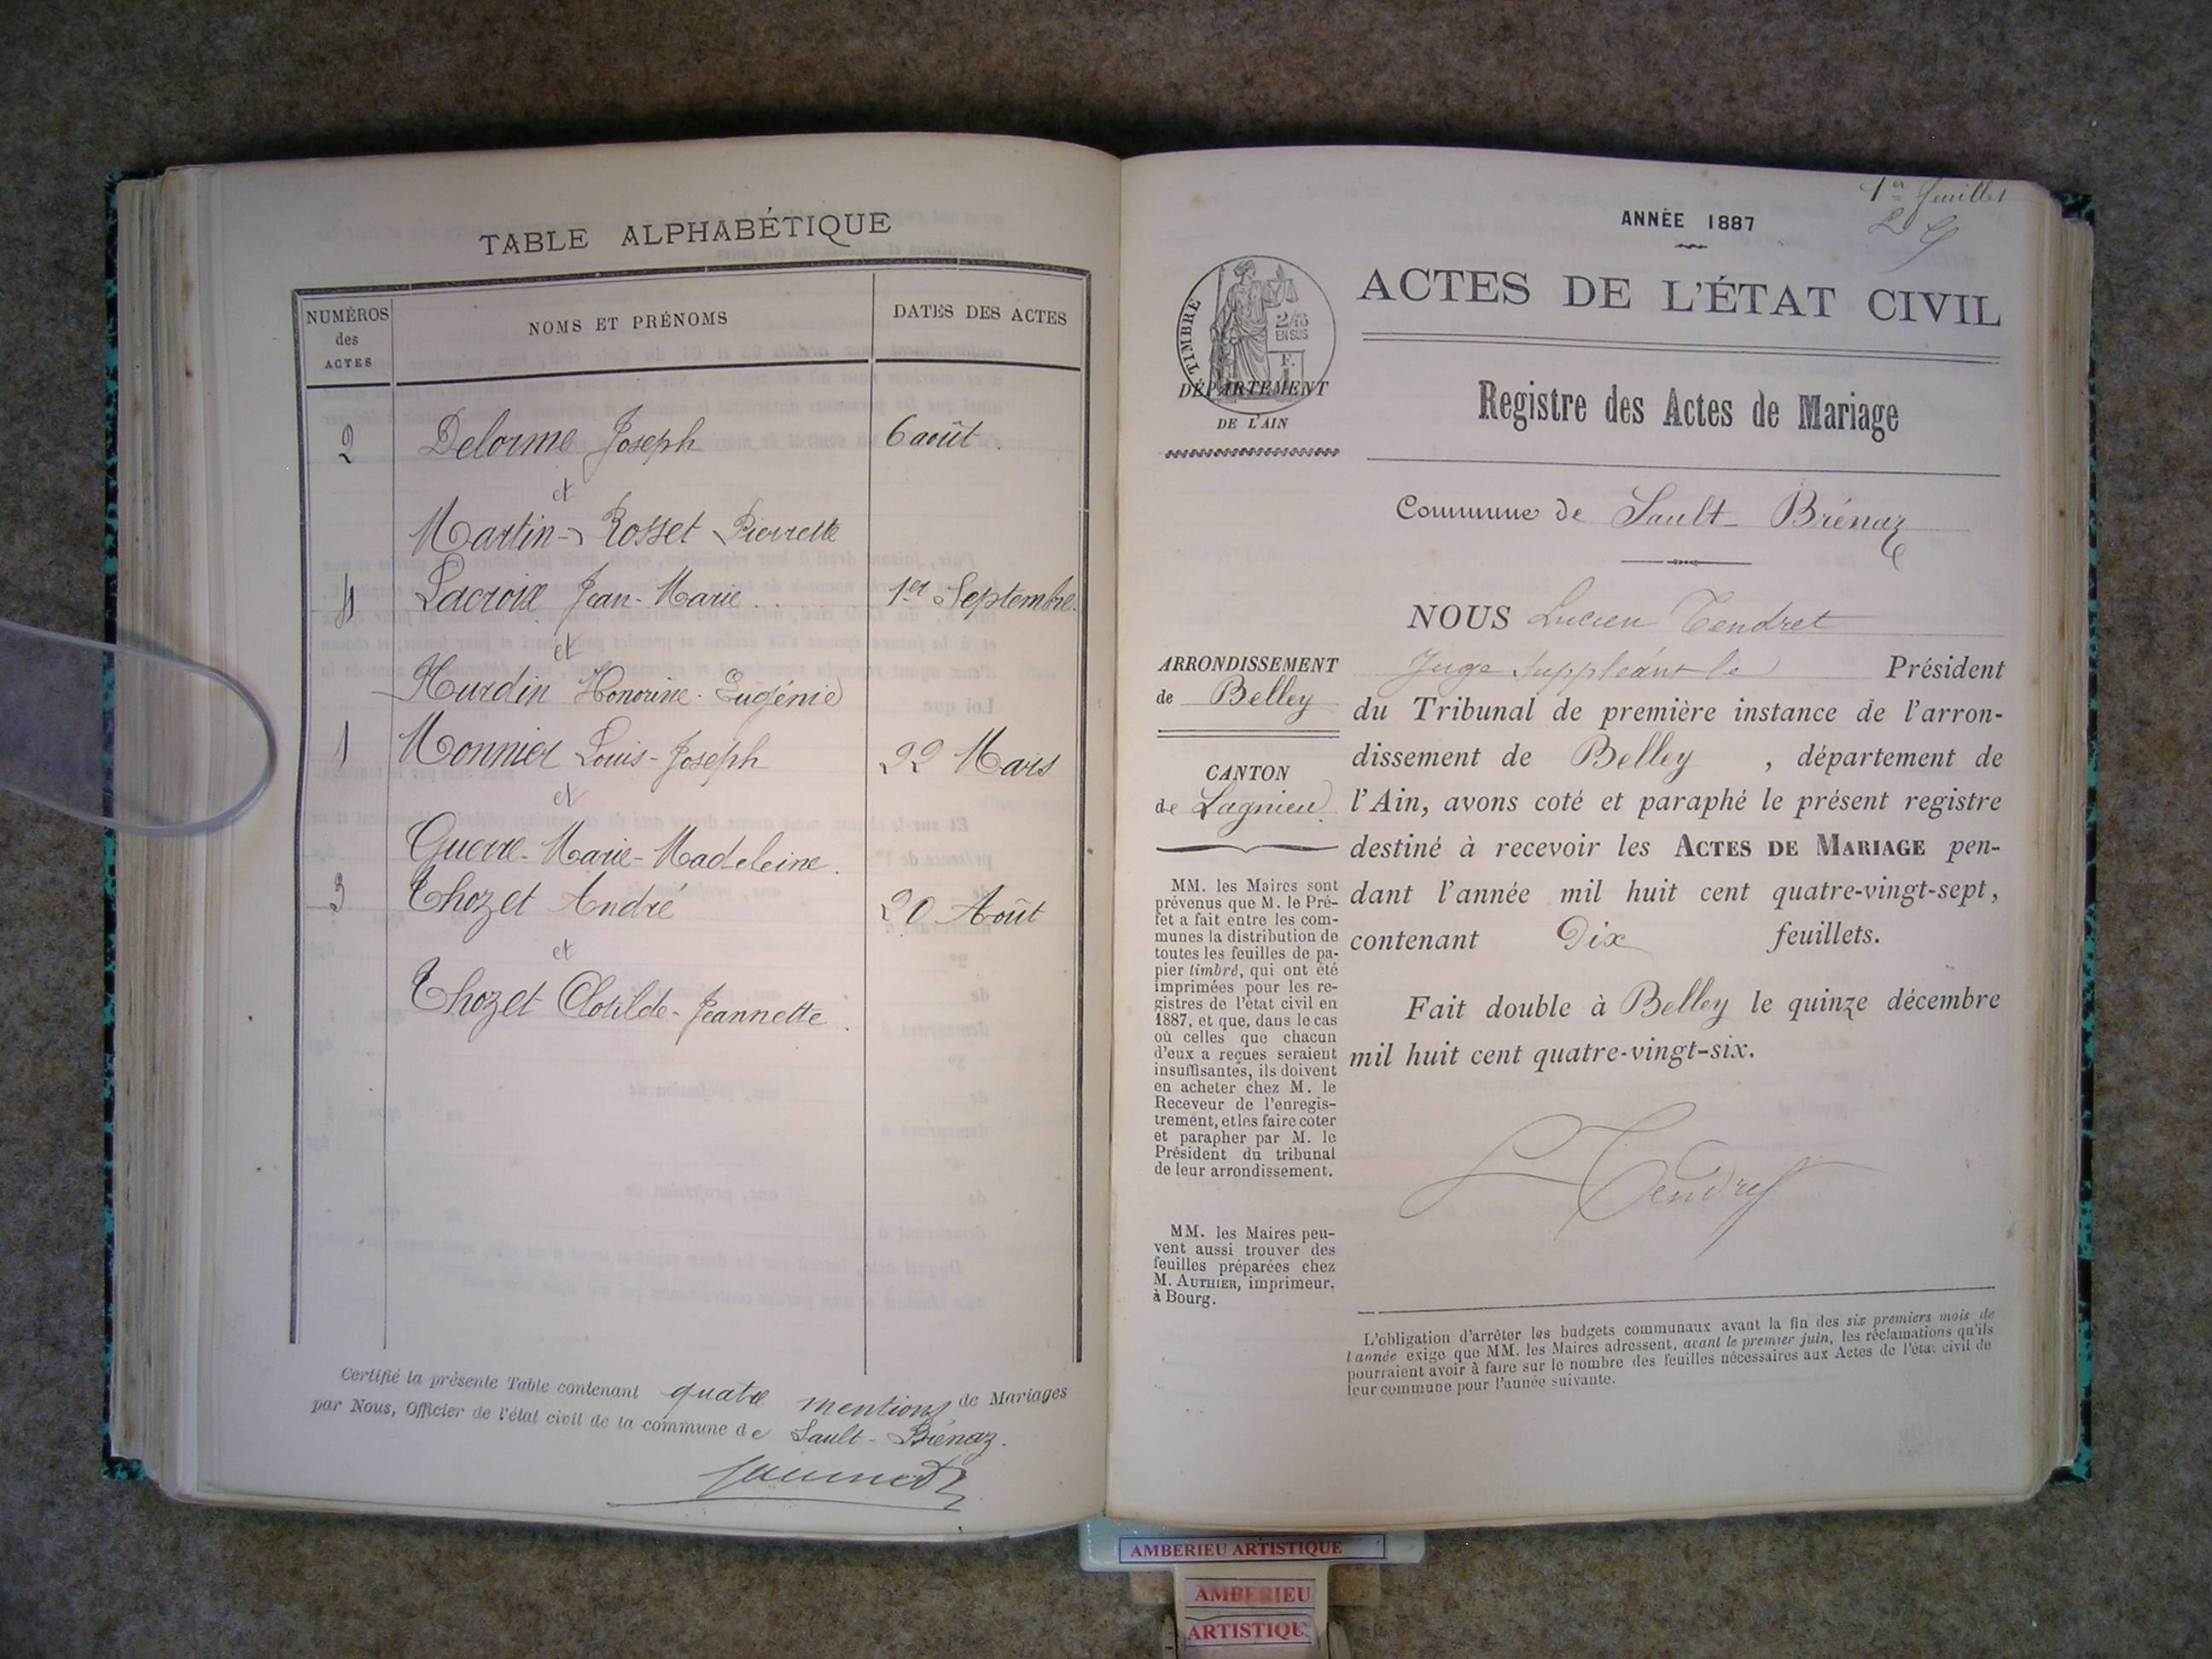 TABLE ALPHABÉTIQUE
NUMÉROS
des
ACTES
NOMS ET PRÉNOMS
DATES DES ACTES
2 Delorme Joseph 6 août.
et
Martin-Rosset Pierrette
4 Lacroix Jean-Marie.. 1er Septembre.
et
Hurdin Honorine-Eugénie
1 Monnier Louis-Joseph 22 Mars
et
Guerre-Marie-Madeleine.
3 Thozet André 20 Août
et
Thozet Clotilde-Jeannette.
Certifié la présente Table contenant quatre mentions de Mariages
par Nous, Officier de l'état civil de la commune de Sault-Brénaz.
1er feuillet
ANNÉE 1887
ACTES DE L'ÉTAT CIVIL
TIMBRE
2/10
EN SUS
DÉPARTEMENT
DE L'AIN
Registre des Actes de Mariage
Commune de Sault-Brénaz
NOUS Lucien Tendret
Juge Suppléant le Président
du Tribunal de première instance de l'arron-
dissement de Belley, département de
l'Ain, avons coté et paraphé le présent registre
destiné à recevoir les ACTES DE MARIAGE pen-
dant l'année mil huit cent quatre-vingt-sept,
contenant Dix feuillets.
Fait double à Belley le quinze décembre
mil huit cent quatre-vingt-six.
L Tendret
ARRONDISSEMENT
de Belley
CANTON
de Lagnieu.
MM. les Maires sont
prévenus que M. le Pré-
fet a fait entre les com-
munes la distribution de
toutes les feuilles de pa-
pier timbré, qui ont été
imprimées pour les re-
gistres de l'état civil en
1887, et que, dans le cas
où celles que chacun
d'eux a reçues seraient
insuffisantes, ils doivent
en acheter chez M. le
Receveur de l'enregis-
trement, et les faire coter
et parapher par M. le
Président du tribunal
de leur arrondissement.
MM. les Maires peu-
vent aussi trouver des
feuilles préparées chez
M. AUTHIER, imprimeur,
à Bourg.
L'obligation d'arrêter les budgets communaux avant la fin des six premiers mois de
l'année exige que MM. les Maires adressent, avant le premier juin, les réclamations qu'ils
pourraient avoir à faire sur le nombre des feuilles nécessaires aux Actes de l'état civil de
leur commune pour l'année suivante.
AMBERIEU ARTISTIQUE
AMBERIEU
ARTISTIQUE